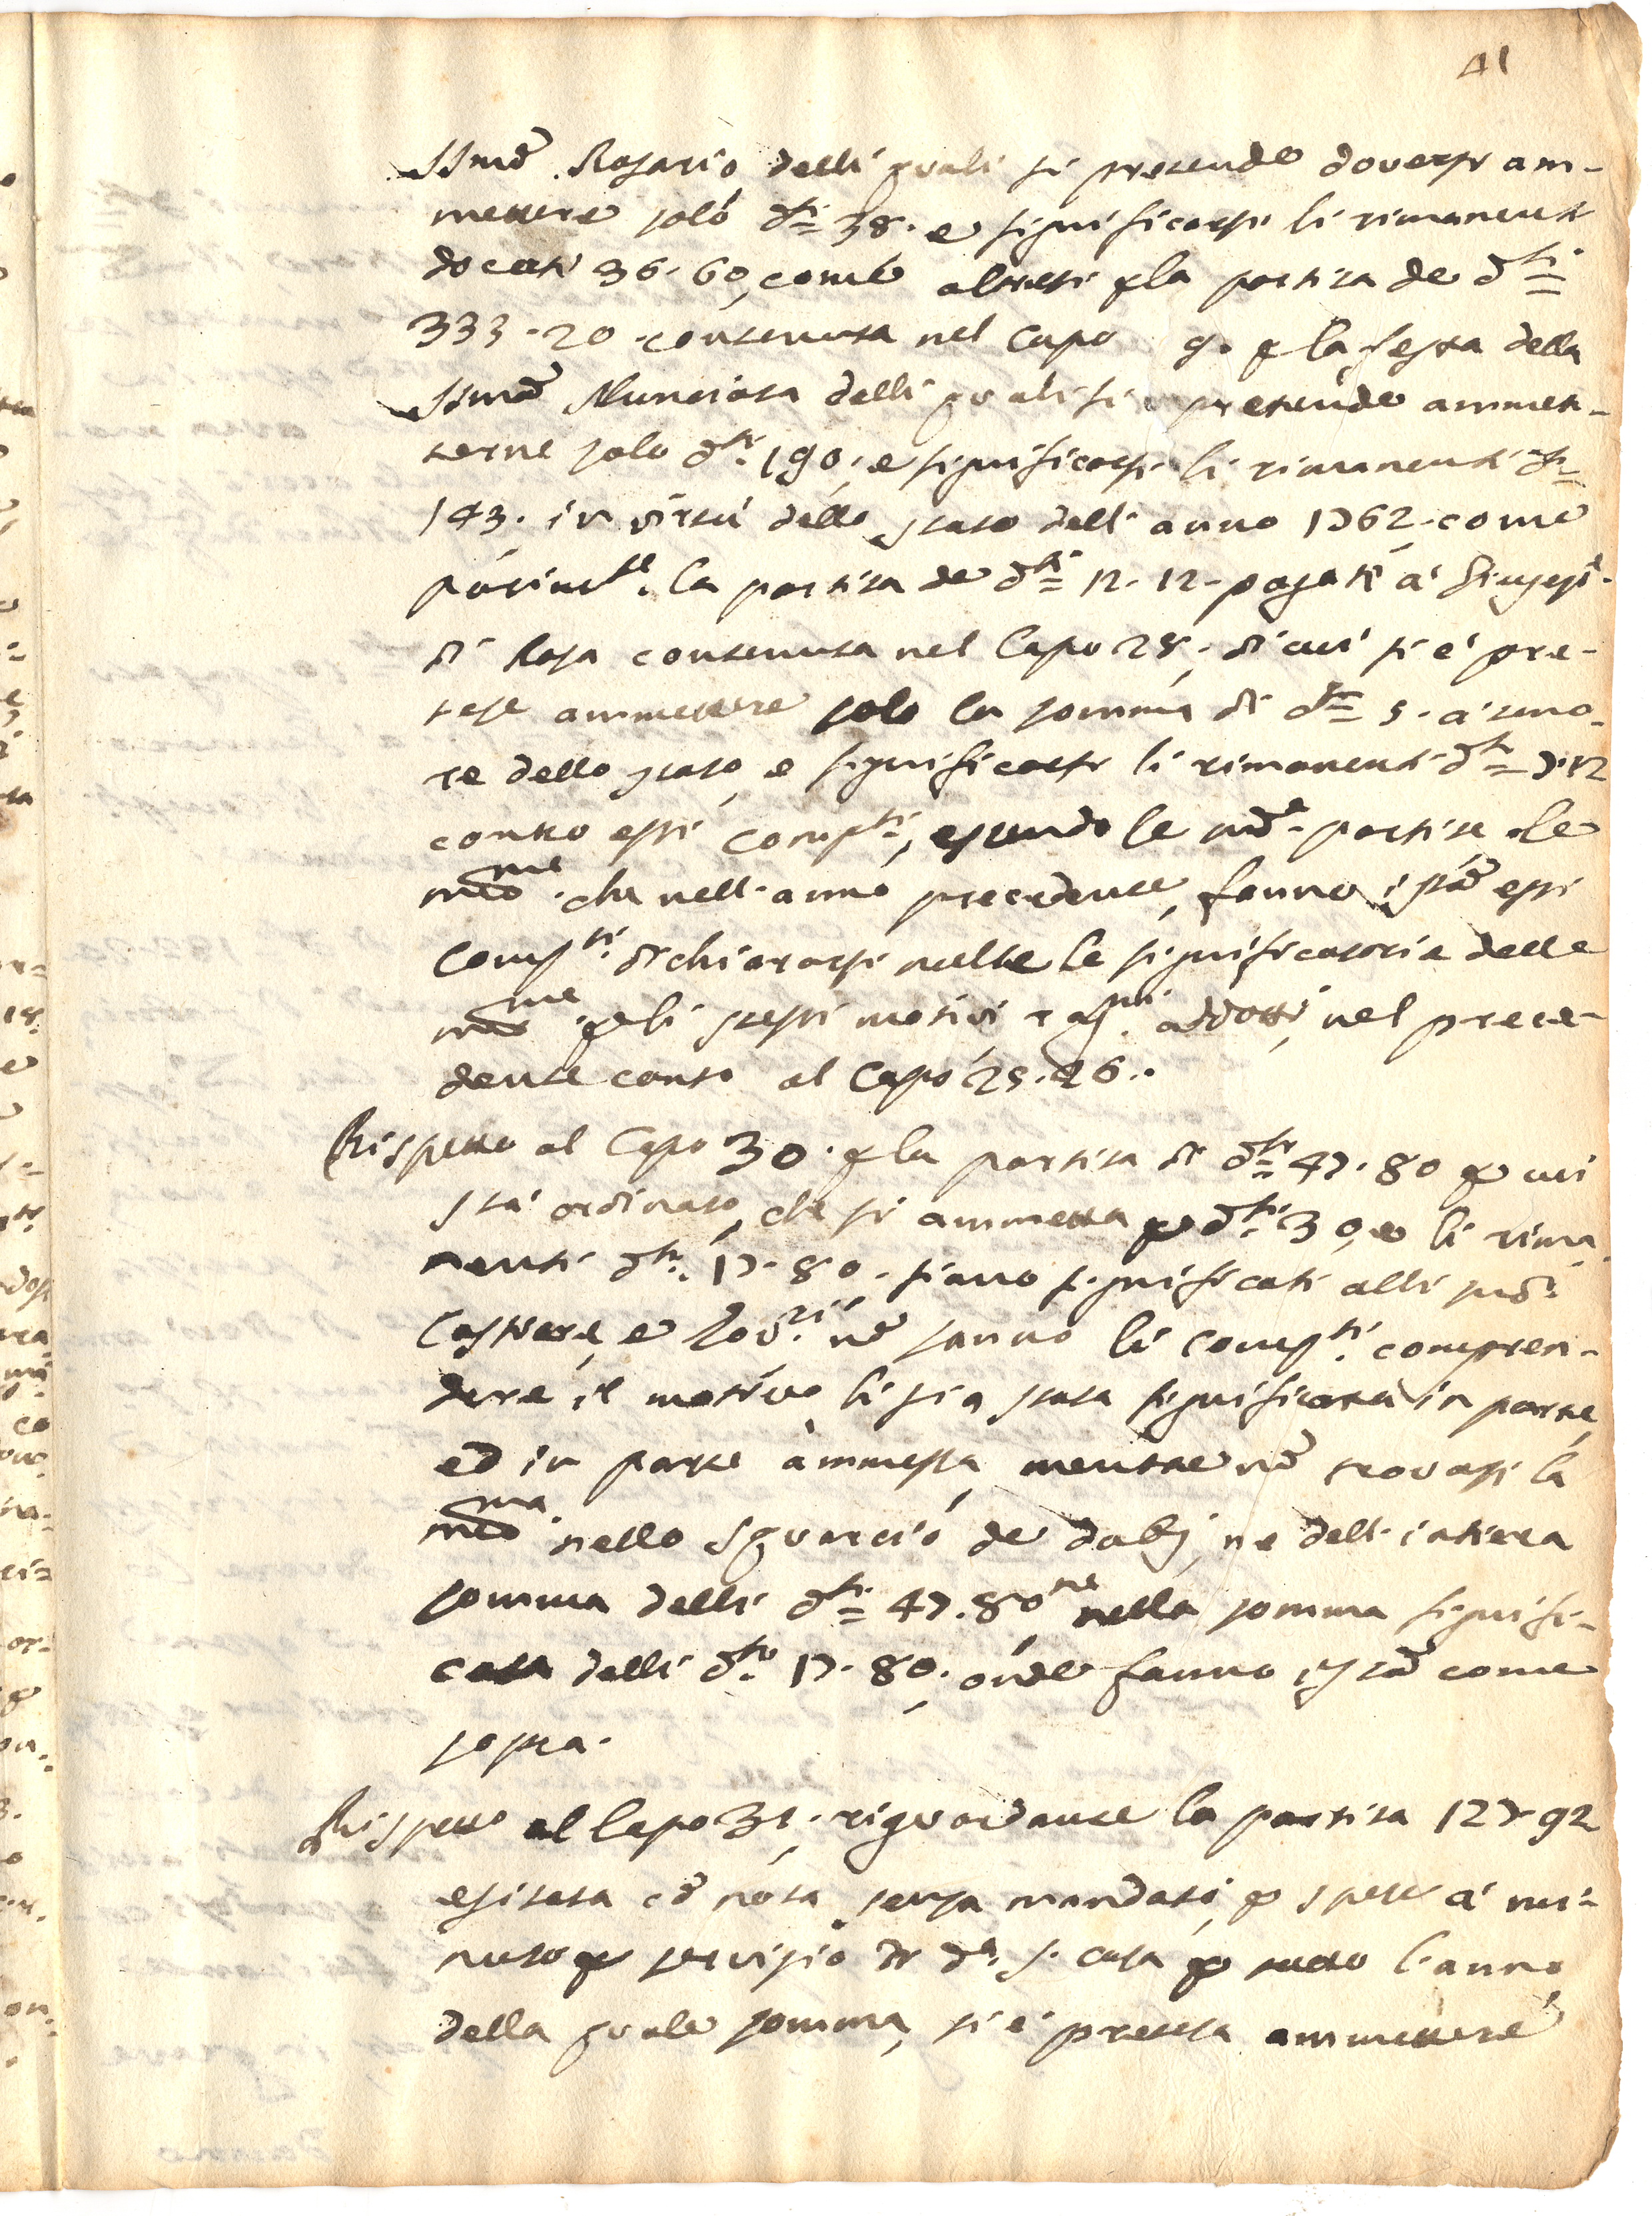 41
SSmo Rosario delli quali si pretende doversi am-
mettere solo d.ti 38. e significarsi li rimanenti
docati 36. 60, come altresi p la partita de d.ti
333.20 contenuta nel Capo 9. p la festa della
SSma Nunciata delli quali si pretende ammet-
terne solo d.ti 190, e significarsi li rimanenti d.ti
143. in virtù dello stato dell'anno 1762. come
parim.te la partita de d.ti 12.12. pagati à Giusep.e
di Rosa contenuta nel Capo 28, di cui si è pre-
tese ammettere solo la somma di d.ti 5. a teno-
re dello stato, e significarsi li rimanenti d.ti 7.12
contro essi Comp.ti, essendo le sud.e partite le
med.me che nell'anno precedente, fanno ist.a essi
Comp.ti dichiararsi nulle le significatorie delle
med.me p li stessi motivi, e rag.ni addotti, nel prece-
dente conto al Capo 25.26..
Rispetto al Capo 30. p la partita di d.ti 47.80 p cui
stà ordinato, che si ammetta p d.ti 30, e li rima-
nenti d.ti 17.80. siano significati alli sud.i
Castrese, e no sanno li Comp.ti compren-
dere il motivo li sia stata significata in parte,
ed in parte ammessa, mentre no trovasi la
med.ma nello squarcio de, ne dell'intiera
somma delli d.ti 47.80 ne nella somma signifi-
cata delli d.ti 17.80. onde fanno ist.a come
sopra.
Rispetto al Capo 31. riguardante la partita 127.92
esitata co nota senza mandato, p spese à mi-
nuto p servizio di d.a S. Casa p tutto l'anno
della quale somma, si è pretesa ammettere